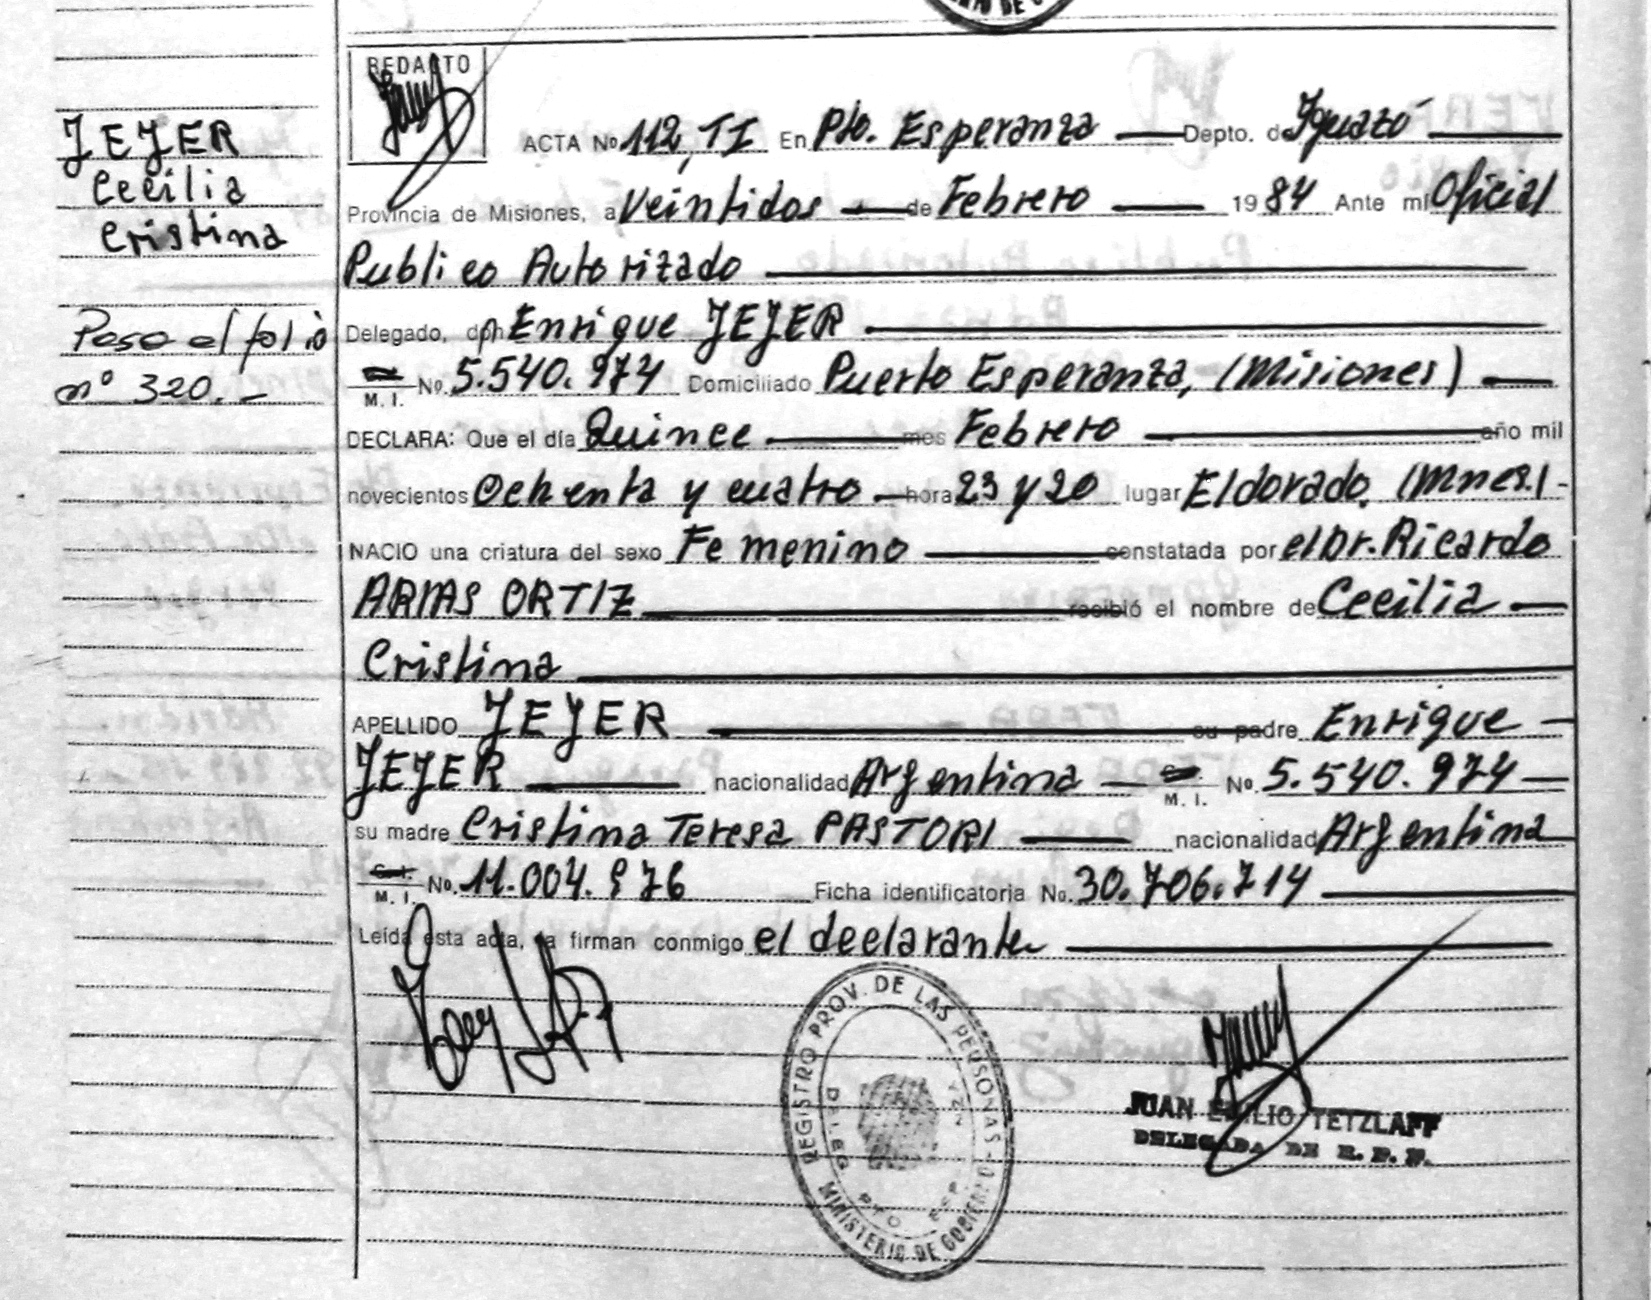 MINISTERIO DE GO
REDACTO
JEJER
Cecilia
Cristina
Pase al folio
nº 320.-
ACTA No 112, TI En Pto. Esperanza Depto. de Iguazó
Provincia de Misiones, a Veintidos de Febrero 1984 Ante mi Oficial
Publico Autorizado
Delegado, don Enrique JEJER
M. I. No. 5.540.974 Domiciliado Puerto Esperanza, (Misiones)
DECLARA: Que el día Quince mes Febrero año mil
novecientos Ochenta y cuatro hora 23 y 20 lugar Eldorado, (Mnes.)-
NACIO una criatura del sexo Femenino constatada por el Dr. Ricardo
ARIAS ORTIZ recibió el nombre de Cecilia
Cristina
APELLIDO JEJER su padre Enrique
JEJER nacionalidad Argentina M. I. No. 5.540.974
su madre Cristina Teresa PASTORI nacionalidad Argentina
M. I. No. 11.004.976 Ficha identificatoria No. 30.706.714
Leída esta acta, la firman conmigo el declarante
REGISTRO PROV. DE LAS PERSONAS
MINISTERIO DE GOBIERNO
DELEG PTO ESP
JUAN EMILIO TETZLAFF
DELEGADA DE R. P. P.